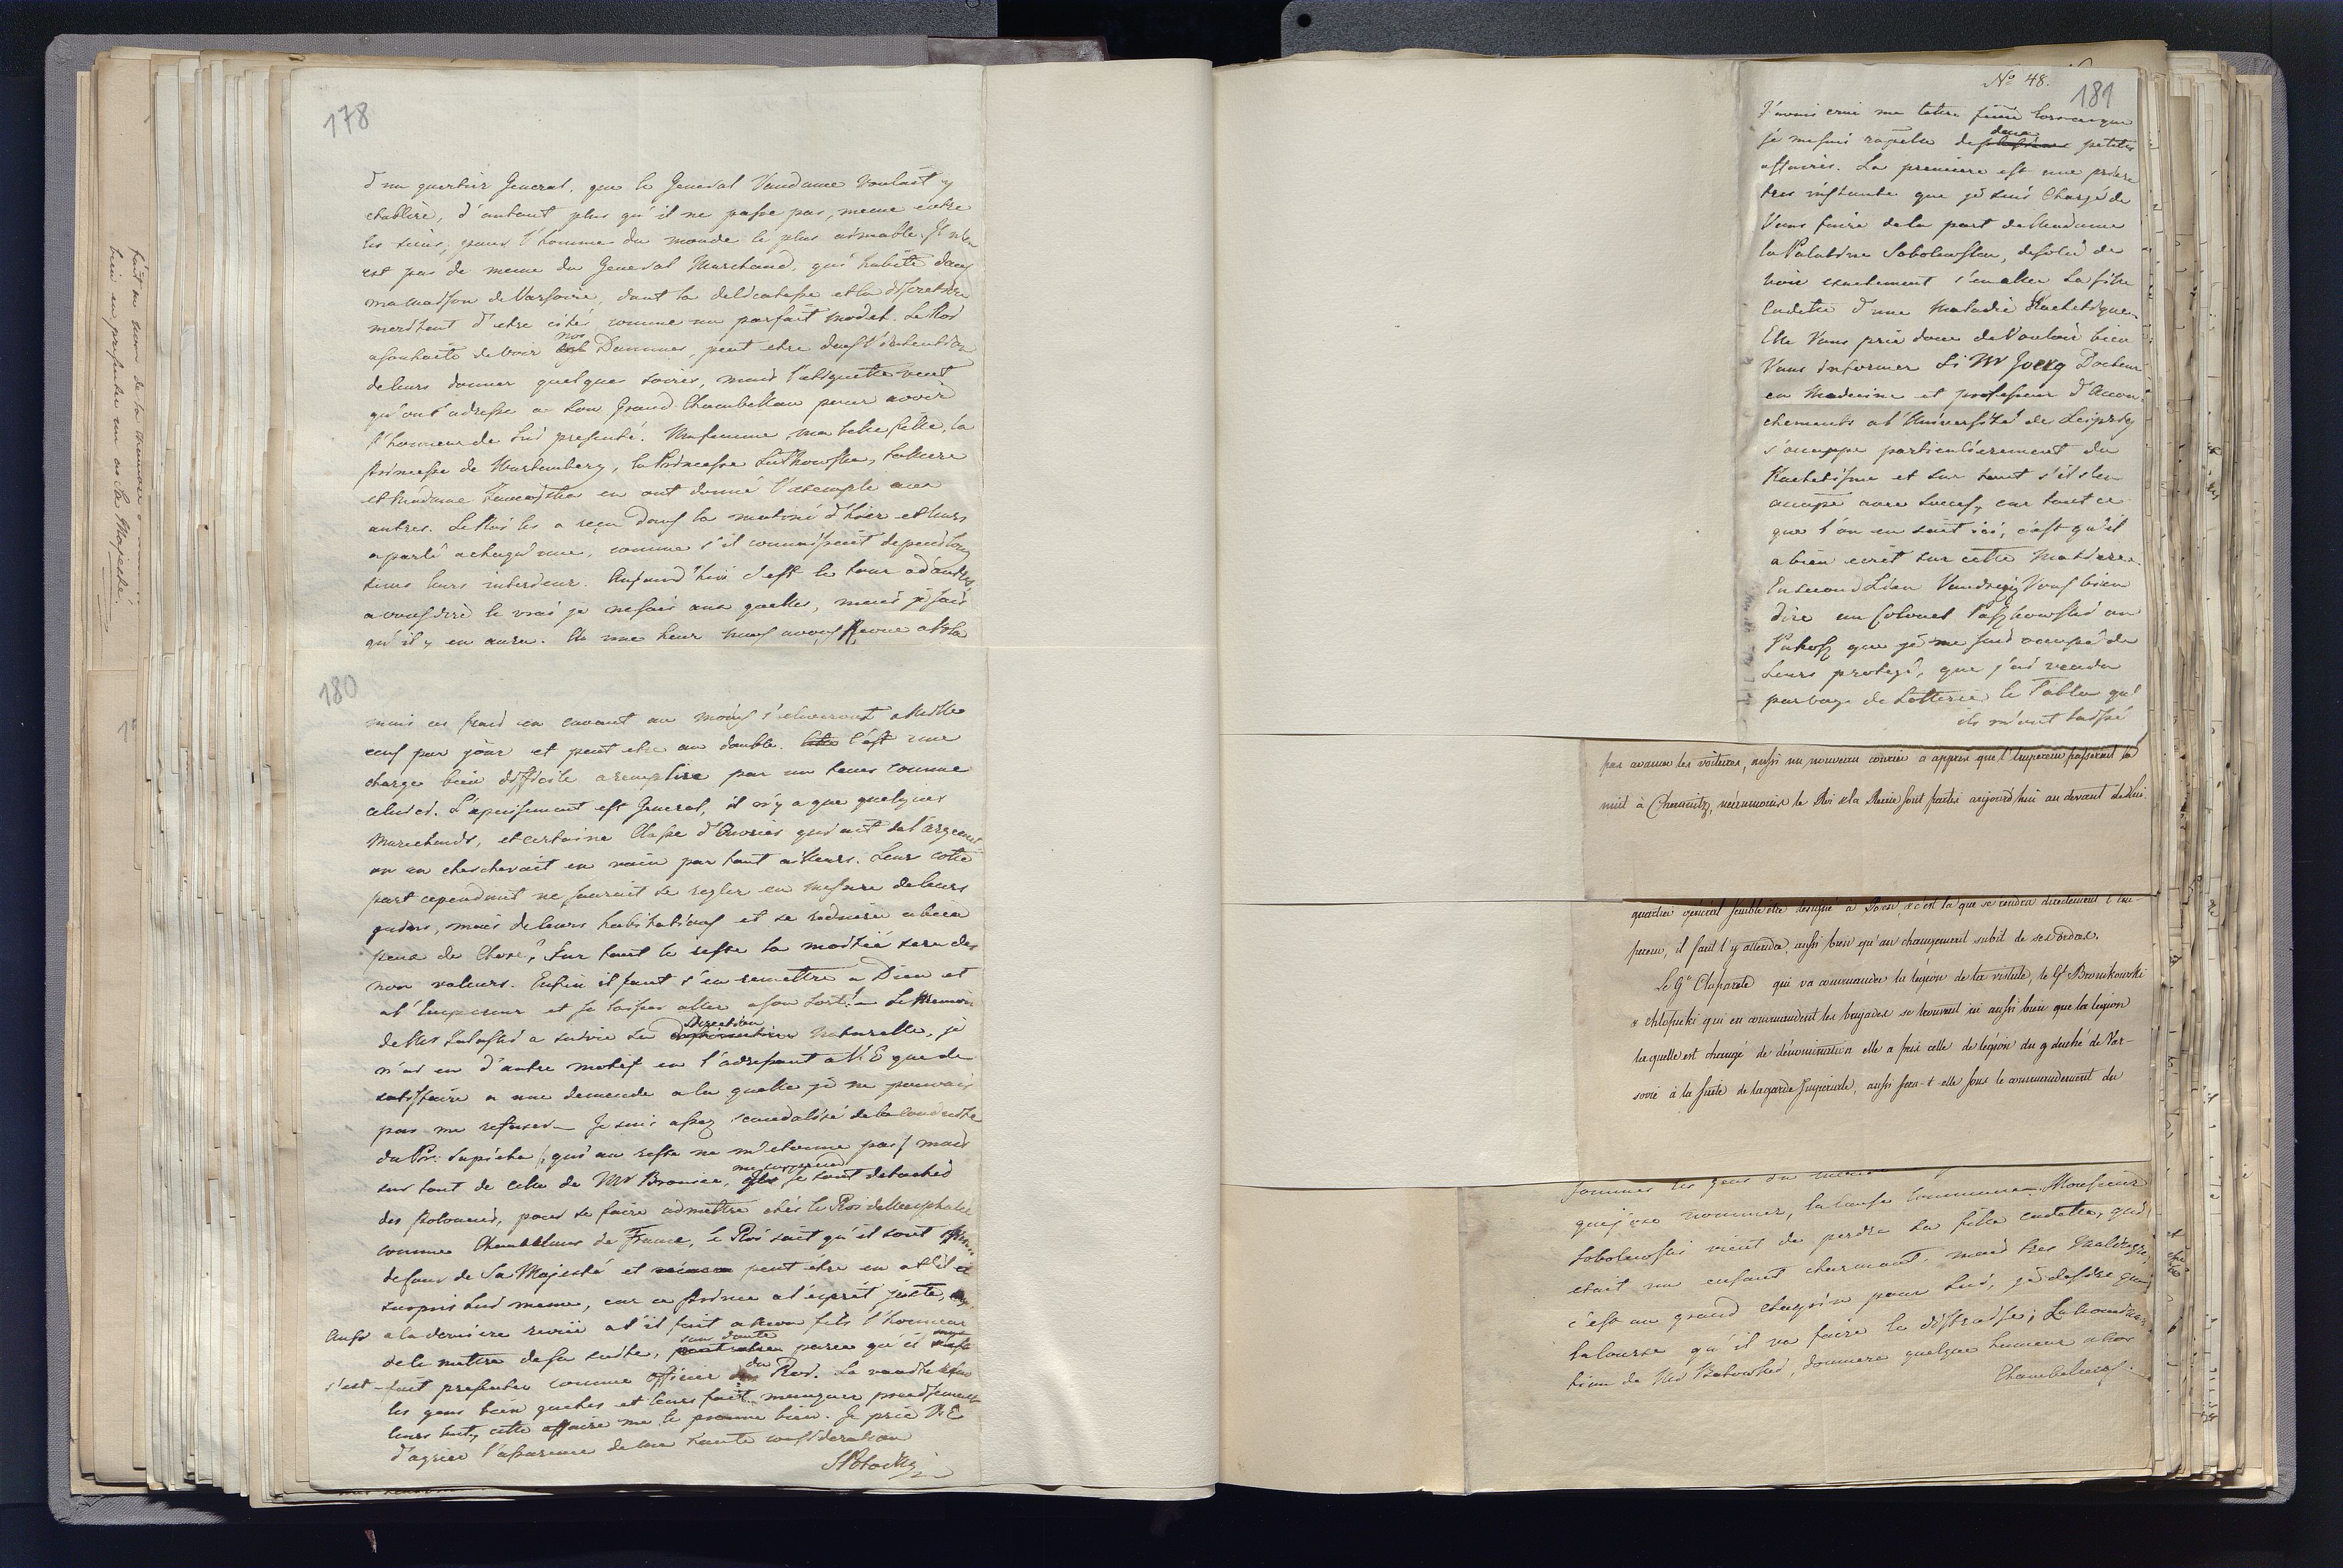 178
d'un quartier General, que le General Vandame voulait y
etablire, d'autant plus qu'il ne passe pas, meme entre
les siens, pour l'homme du monde le plus aimable. Il n'en
est pas de meme du General Marchand, qui habite dans
ma maison de Varsovie, dont la delicatesse et la discretion
meritent d'etre cités, comme un parfait model. Le Roi
a souhaité de voir nos Dammes, peut etre dans l'intention
de leurs donner quelque soirée, mais l'etiquette veut
qu'on s'adresse a son Grand Chambellan pour avoir
l'honneur de lui presenté. Ma femme, ma belle fille, la
Princesse de Wurtemberg, la Princesse
et Madame en ont donné l'exemple aux
autres. Le Roi les a reçu dans la matiné d'hier et leurs
a parlé a chaqu'une, comme s'il connaissait depuis long
tems leurs interieur. Aujourd'hui c'est le tour a d'autres
a vous dire le vrai je ne sais aux quelles, mais je sais
qu'il y en aura. A une heur nous avons Revue et la
180
mais ces frais en euvant au moins s'eleveront a Mille
ecus par jour et peut etre au double. C'est une
charge bien difficile a remplire par un tems comme
celui ci. L'epuisement est General, il n'y a que quelques
Marchands, et certaine Classe d'Ouvriers qui ait de l'argent
on en chercherait en vain par tout ailleurs. Leur cotte
part cependant ne saurait se regler en mesure de leurs
gains, mais de leurs habitations et se reduira a bien
peux de Chose, sur tout le reste la moitié sera des
non valeurs. Enfin il faut s'en remettre a Dieu et
a l'Empereur et se laisser aller a son sort. — Le Memoire
de Mr a suivie sa Direction Naturelle, je
n'ai eu d'autre motif en l'adressant a V. E que de
satisfaire a une demande a la quelle je ne pouvais
pas me refuser — Je suis assez scandalisé de la conduite
du Pr: Sapieha (qui au reste ne m'etonne pas) mais
sur tout de celle de Mr Bronice, me surprend ils se sont detachés
des Polonais, pour se faire admettre chés le Roi de Westphalie
comme Chambellans de France, le Roi sait qu'il sont
de ceux de Sa Majesté et peut être en at'il été
surpris lui meme, car ce Prince a l'esprit juste,
Aussi a la derniere revüe at'il fait a Mon fils l'honneur
de le mettre de sa suite, sans doute parce qu'il
s'est fait presenter comme officier du Roi. La vanité
les gens bien gauches et leurs fait manquer precisement
leurs but, cette affaire me le prouve bien. Je prie V. E
d'agréer l'assurance de ma haute consideration
SPotocki
fait au sein de la
bien en presenter un a Sa Majesté.
No 48.
181
J'avais crui ma lettre finie lorsceque
je me suis rapellé de deux petites
affaires. La premiere est une priere
tres instante que je suis Chargé de
Vous faire de la part de Madame
la Palatine Sobolewska, desolée de
voir exactement s'en aller sa fille
Cadette d'une Maladie Rachetique.
Elle Vous prie donc de Vouloir bien
Vous informer si Mr Joerg Docteur
en Medecine et professeur d'Accou-
chements a l'Université de Leipzig
s'occuppe particulierement du
Rachetisme et sur tout s'il s'en
occuppe avec succes, car tout ce
que l'on en sait ici, c'est qu'il
a bien ecrit sur cette Matiere.
En second Lieu Voudriez Vous bien
dire au Colonel Paszkowski au
que je me suis occupé de
Leurs protegé, que j'ai vendu
par voye de Lotterie le Tableu qu'
ils m'ont laissé
pas avancer les voitures, aussi un nouveau courier a appris que l'Empereur passerait la
nuit à Chemnitz, néenmoins le Roi & la Reine sont partis aujourd'hui au devant de lui.
quartier général semble être designé à Posen, & c'est la que se rendra directement l'Em-
pereur, il faut s'y attendre, aussi bien qu'au changement subit de ses ordres.
Le Gl Claparede qui va commander la legion de la vistule, le Gl Bronikowski
& Chlopicki qui en commandent les brigades se trouvent ici aussi bien que la legion
la quelle est changé de dénomination elle a pris celle de legion du g duché de Var-
sovie à la suite de la garde Imperiale, aussi sera-t-elle sous le commandement du
sommes les gens du
que j'ose nommer, la cause commune. Monsieur
Sobolewski vient de perdre sa fille cadette, qui
etait un enfant charmant, mais tres Malingre,
c'est un grand chagrin pour lui, je desire que
la course qu'il va faire le distraise;
tion de Mr Batowski, donnera quelque humeur a vos
Chambelans.